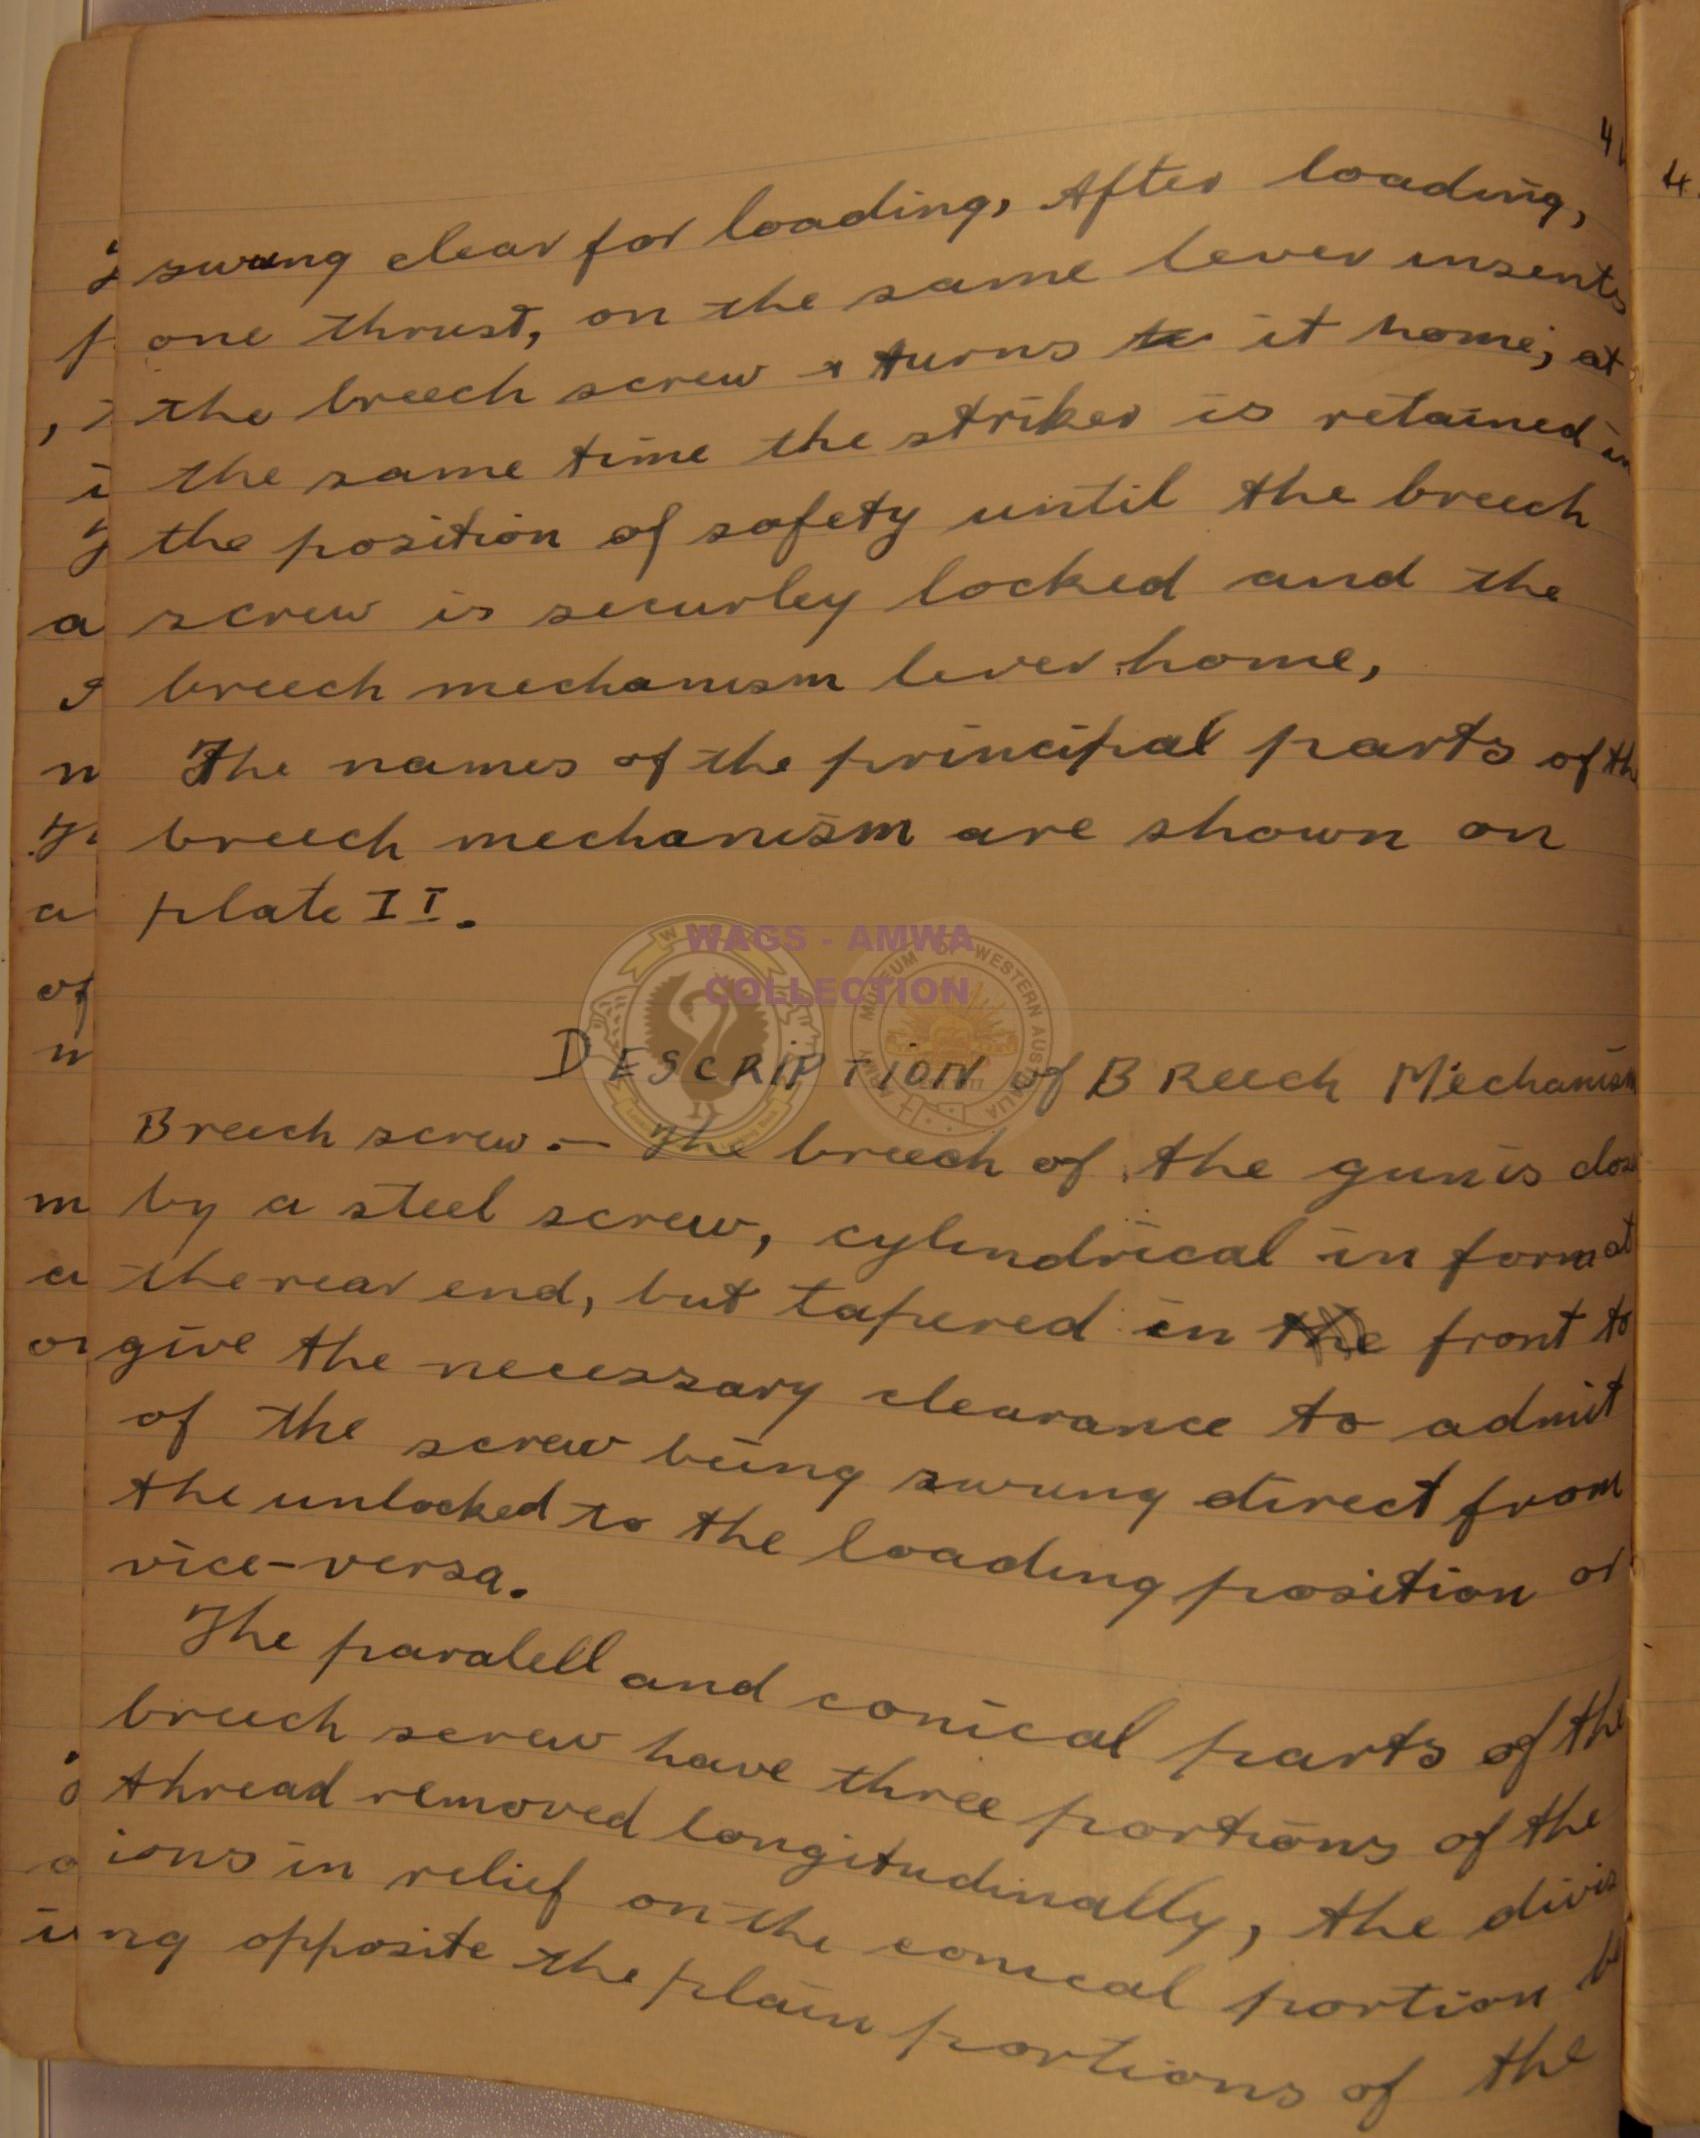 swung clear for loading, After loading,
one thrust, on the same lever insents
the breech screw & turns to it home; at
the same time the striker is retained in
the position of safety until the breech
screw is securley locked and the
breech mechanism lever home,
The names of the principal parts of the
breech mechanism are shown on
plate II.
WAGS - AMWA
COLLECTION
DESCRIPTION of BReech Mechanism
Breech screw. — The breech of the gun is close
by a steel screw, cylindrical in form at
the rear end, but tapered in the front to
give the necessary clearance to admit
of the screw being swung direct from
the unlocked to the loading position or
vice-versa.
The paralell and conical parts of the
breech screw have three portions of the
thread removed longitudinally, the divis
ions in relief on the conical portion be
ing opposite the plain portions of the